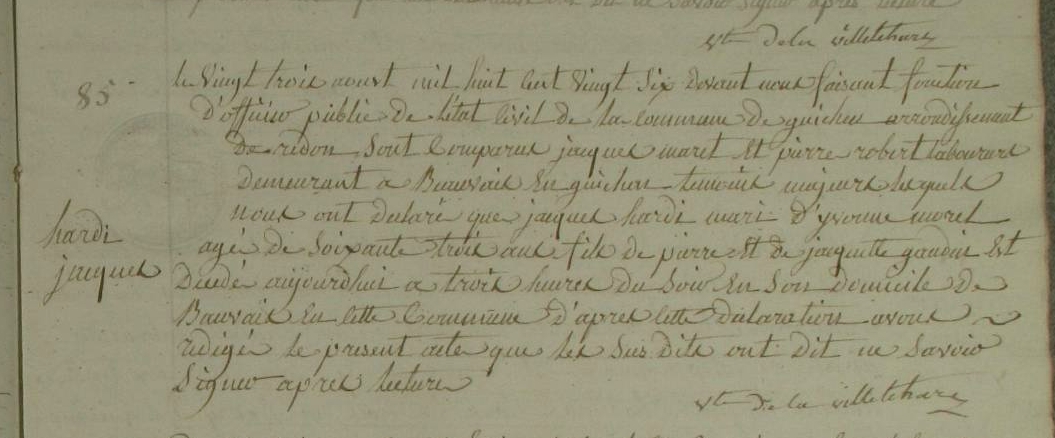 Vte de la villethare
85
le Vingt trois aoust mil huit cent Vingt Six devant nous faisant fonction
D'officier public de l'état Civil de la Commune De guichen arrondissement
De redon, Sont Comparus jacques maret Et pierre robert laboureurs
Demeurant a Beauvais En guichen temoins majeurs lesquels
Nous ont declaré que jacques hardi mari D'yvonne morel
hardi
jacques
agé de Soixante trois ans fils de pierre Et de jacquette gaudin Est
Decedé aujourdhui a trois heures Du Soir En Son domicile De
Bauvais En cette Commune D'apres cette declaration avons
redigé le present acte que les Sus Dits ont Dit ne Savoir
Signer apres lecture
Vte De la villethare